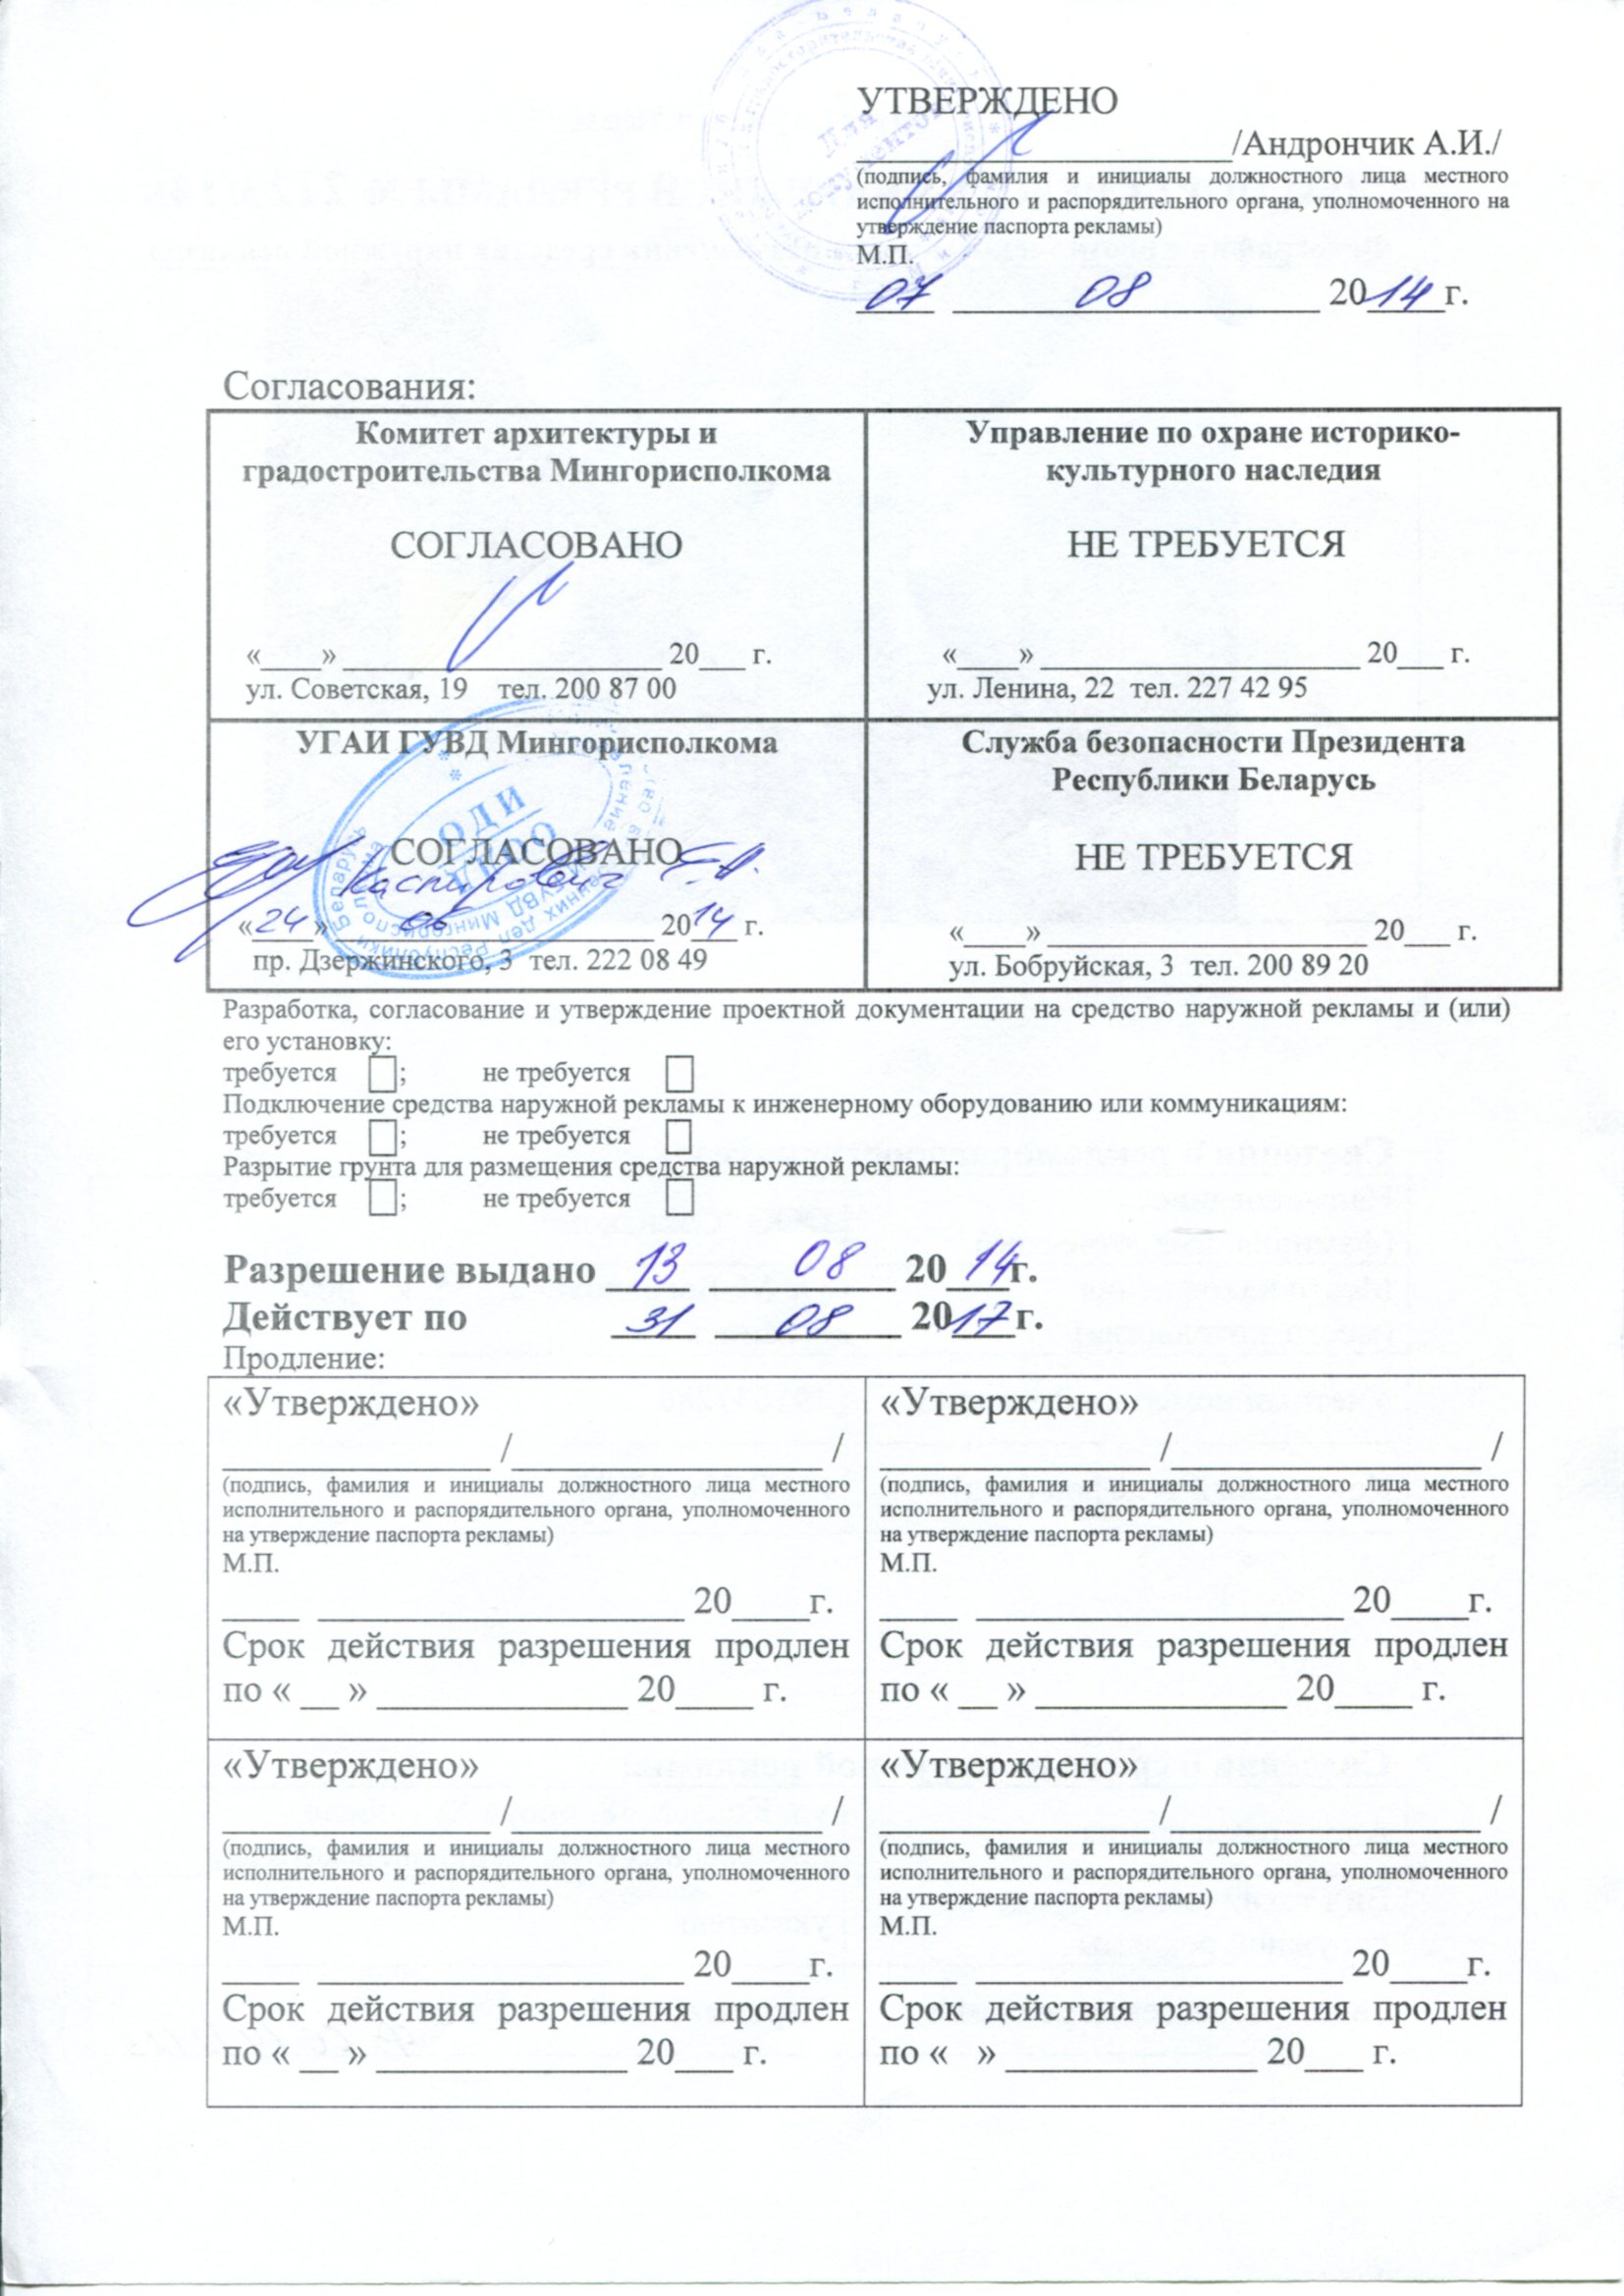 УТВЕРЖДЕНО
/Андрончик А.И./
(подпись, фамилия и инициалы должностного лица местного
исполнительного и распорядительного органа, уполномоченного на
утверждение паспорта рекламы)
М.П.
07 08 2014г.
Согласования:
Комитет архитектуры и
градостроительства Мингорисполкома
СОГЛАСОВАНО
«____» ____________ 20___ г.
ул. Советская, 19 тел. 200 87 00
Управление по охране историко-
культурного наследия
НЕ ТРЕБУЕТСЯ
«____» ____________ 20___ г.
ул. Ленина, 22 тел. 227 42 95
УГАИ ГУВД Мингорисполкома
СОГЛАСОВАНО
«24» 06 2014 г.
пр. Дзержинского, 3 тел. 222 08 49
Служба безопасности Президента
Республики Беларусь
НЕ ТРЕБУЕТСЯ
«____» ____________ 20___ г.
ул. Бобруйская, 3 тел. 200 89 20
Разработка, согласование и утверждение проектной документации на средство наружной рекламы и (или)
его установку:
требуется ; не требуется
Подключение средства наружной рекламы к инженерному оборудованию или коммуникациям:
требуется ; не требуется
Разрытие грунта для размещения средства наружной рекламы:
требуется ; не требуется
Разрешение выдано 13 08 2014г.
Действует по 31 08 2017г.
Продление:
«Утверждено»
____________ /____________ /
(подпись, фамилия и инициалы должностного лица местного
исполнительного и распорядительного органа, уполномоченного
на утверждение паспорта рекламы)
М.П.
____ ____________ 20____г.
Срок действия разрешения продлен
по « __ » ____________ 20____ г.
«Утверждено»
____________ /____________ /
(подпись, фамилия и инициалы должностного лица местного
исполнительного и распорядительного органа, уполномоченного
на утверждение паспорта рекламы)
М.П.
____ ____________ 20____г.
Срок действия разрешения продлен
по « __ » ____________ 20____ г.
«Утверждено»
____________ /____________ /
(подпись, фамилия и инициалы должностного лица местного
исполнительного и распорядительного органа, уполномоченного
на утверждение паспорта рекламы)
М.П.
____ ____________ 20____г.
Срок действия разрешения продлен
по « __ » ____________ 20___ г.
«Утверждено»
____________ /____________ /
(подпись, фамилия и инициалы должностного лица местного
исполнительного и распорядительного органа, уполномоченного
на утверждение паспорта рекламы)
М.П.
____ ____________ 20____г.
Срок действия разрешения продлен
по « » ____________ 20___ г.